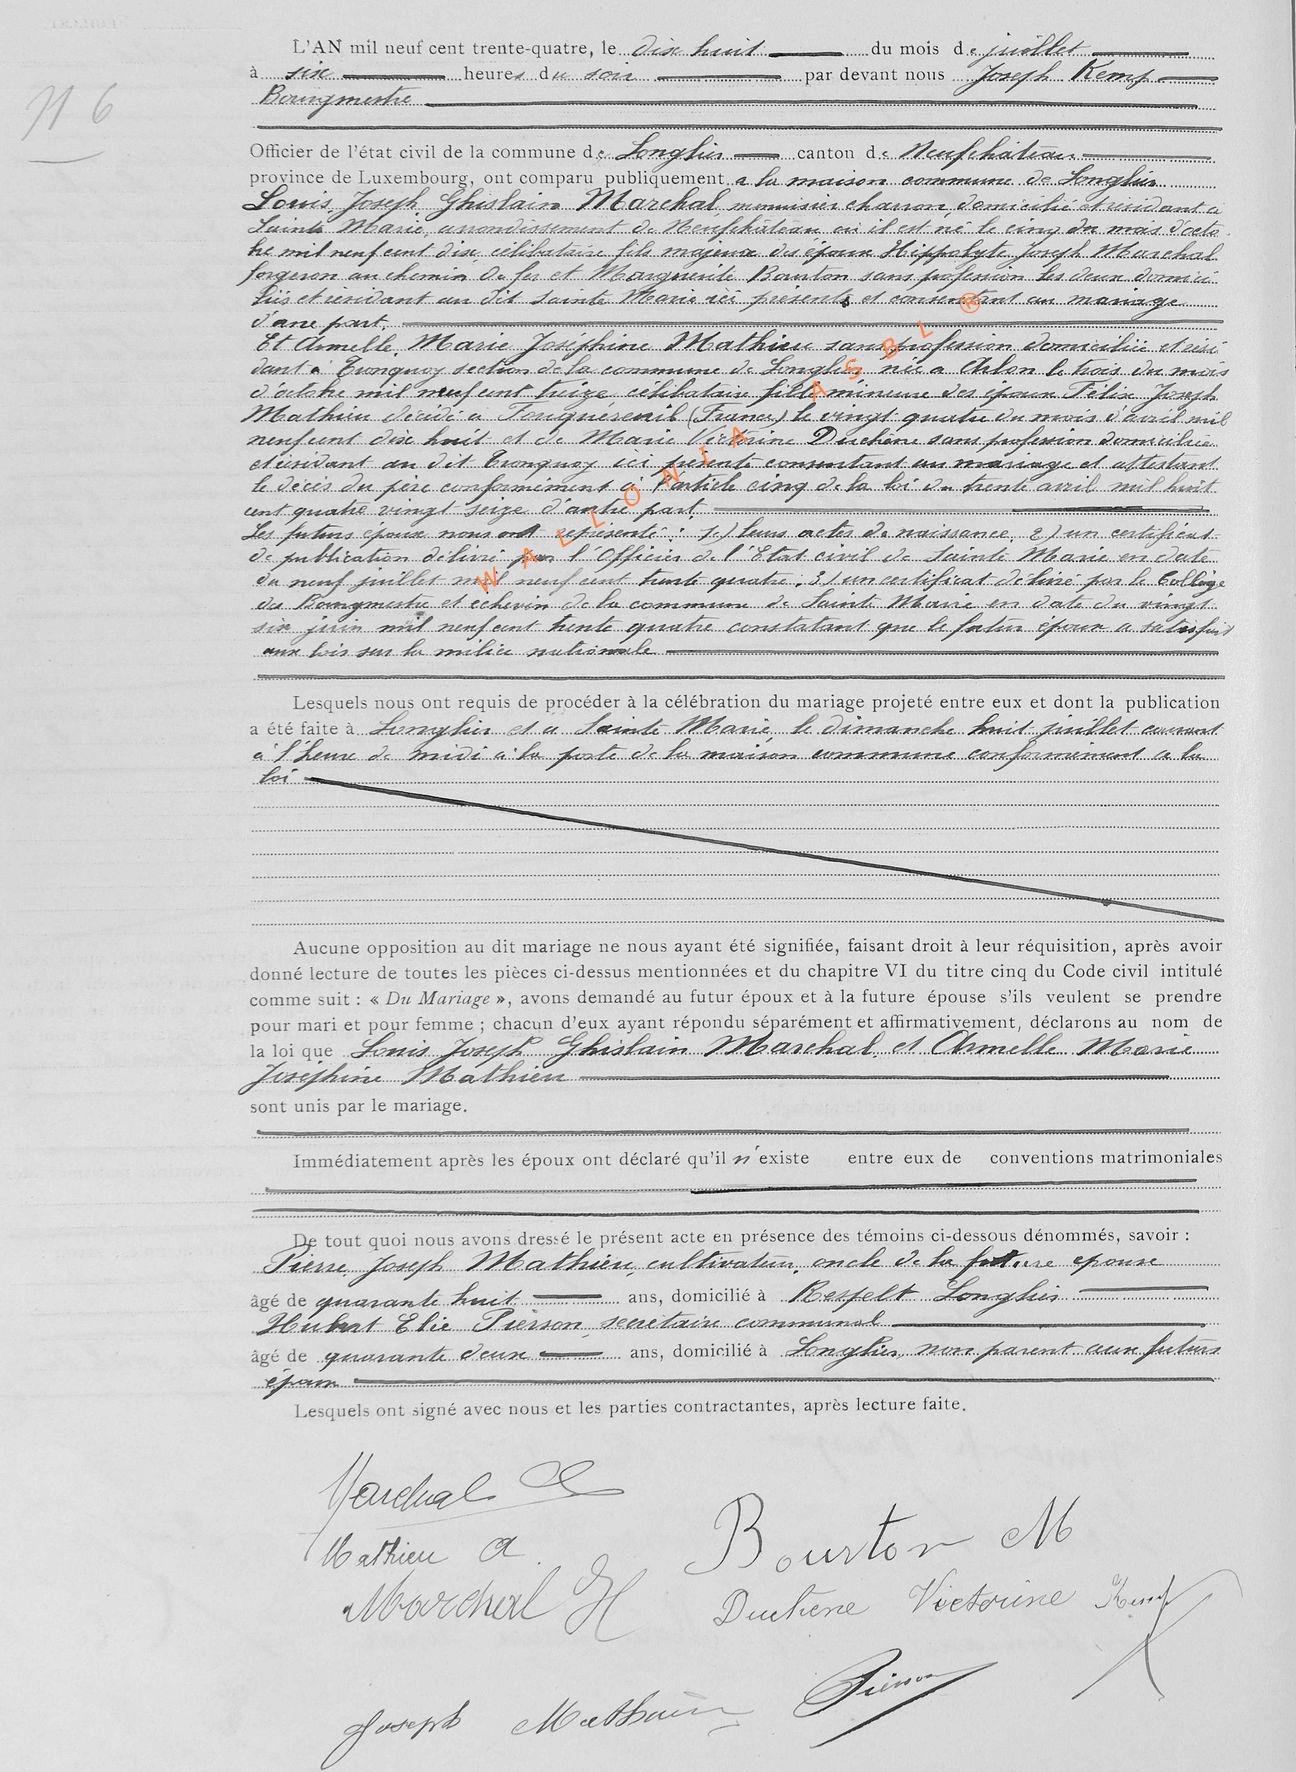 N 6
L'AN mil neuf cent trente-quatre, le dix huit du mois de juillet
à six heures du soir par devant nous Joseph Kemp
Bourgmestre
Officier de l'état civil de la commune de Longlier canton de Neufchâteau
province de Luxembourg, ont comparu publiquement a la maison commune de Longlier
Louis Joseph Ghislain Marchal, menuisier charron, domicilié et résidant à
Sainte Marie, arrondissement de Neufchâteau où il est né le cinq du mois d'octo
bre mil neuf cent dix célibataire fils majeur des époux Hippolyte Joseph Marchal
forgeron au chemin de fer et Marguerite Bourton sans profession les deux domici
liés et résidant au dit Sainte Marie ici présents et consentant au mariage
d'une part.
Et Armelle, Marie Joséphine Mathieu sans profession domiciliée et rési
dant à Tronquoy section de la commune de Longlier née a Arlon le trois du mois
d'octobre mil neuf cent treize, célibataire fille mineure des époux Félix Joseph
Mathieu décédé à (France) le vingt quatre du mois d'avril mil
neuf cent dix huit et de Marie Victorine Duchêne sans profession domiciliée
et résidant au dit Tronquoy ici présente consentant au mariage et attestant
le décès du père conformément à l'article cinq de la loi du trente avril mil huit
cent quatre vingt seize d'autre part.
Les futurs époux nous ont représenté : 1.) leurs actes de naissance, 2) un certificat
de publication délivré par l'Officier de l'Etat civil de Sainte Marie en date
du neuf juillet mil neuf cent trente quatre, 3) un certificat délivré par le Collège
des Bourgmestre et echevin de la commune de Sainte Marie en date du vingt
six juin mil neuf cent trente quatre constatant que le futur époux a satisfait
aux lois sur la milice nationale
WALLONIA ASBL ®
Lesquels nous ont requis de procéder à la célébration du mariage projeté entre eux et dont la publication
a été faite à Longlier et a Sainte Marie, le dimanche huit juillet courant
à l'heure de midi à la porte de la maison commune conformément a la
loi
Aucune opposition au dit mariage ne nous ayant été signifiée, faisant droit à leur réquisition, après avoir
donné lecture de toutes les pièces ci-dessus mentionnées et du chapitre VI du titre cinq du Code civil intitulé
comme suit : « Du Mariage », avons demandé au futur époux et à la future épouse s'ils veulent se prendre
pour mari et pour femme ; chacun d'eux ayant répondu séparément et affirmativement, déclarons au nom de
la loi que Louis Joseph Ghislain Marchal et Armelle Marie
Joséphine Mathieu
sont unis par le mariage.
Immédiatement après les époux ont déclaré qu'il n'existe entre eux de conventions matrimoniales
De tout quoi nous avons dressé le présent acte en présence des témoins ci-dessous dénommés, savoir :
Pierre Joseph Mathieu, cultivateur, oncle de la future epouse
âgé de quarante huit ans, domicilié à Respelt Longlier
Hubert Elie Pierson, secrétaire communal
âgé de quarante deux ans, domicilié à Longlier, non parent aux futurs
epoux
Lesquels ont signé avec nous et les parties contractantes, après lecture faite.
Marchal L
Mathieu a Bourton M
Marchal H Duchêne Victorine Kemp
Joseph Mathieu Pierson